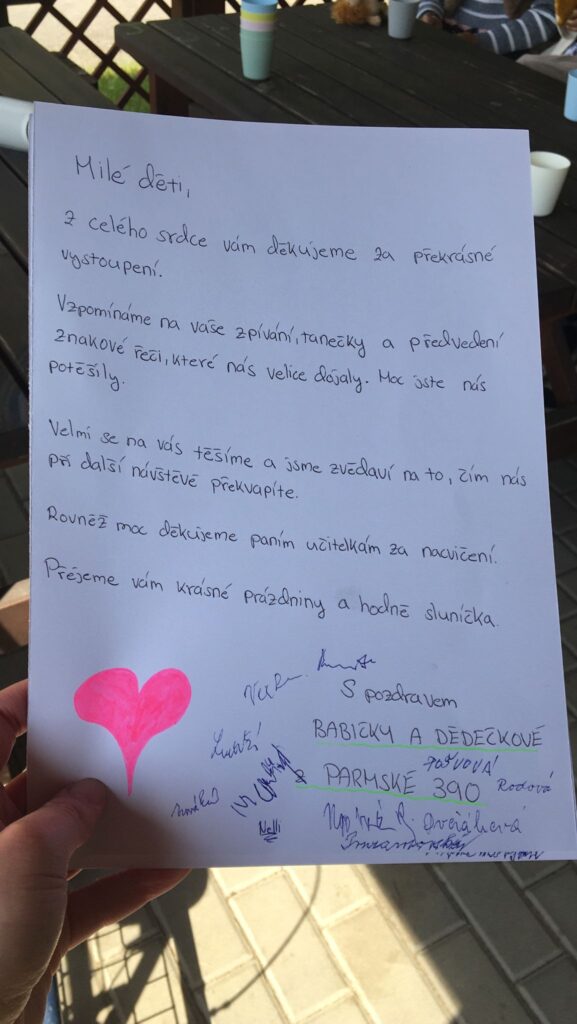 Milé děti,
z celého srdce vám děkujeme za překrásné
vystoupení.
Vzpomínáme na vaše zpívání, tanečky a předvedení
znakové řeči, které nás velice dojaly. Moc jste nás
potěšily.
Velmi se na vás těšíme a jsme zvědaví na to, čím nás
při další návštěvě překvapíte.
Rovněž moc děkujeme paním učitelkám za nacvičení.
Přejeme vám krásné prázdniny a hodně sluníčka.
S pozdravem
BABIČKY A DĚDEČKOVÉ
Z PARMSKÉ 390
Rodová
Nelli